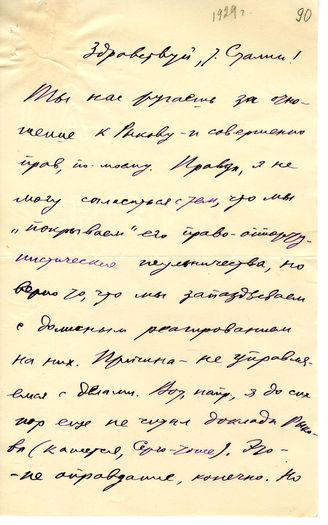 1929 г.
90
Здравствуй, т. Сталин!
Ты нас ругаешь за отно-
шение к Рыкову – и совершенно
прав, по-моему. Правда, я не
могу согласиться с тем, что мы
„покрываем" его право-оппорту-
нистические жульничества, но
верно то, что мы запаздываем
с должным реагированием
на них. Причина – не управля-
емся с делами. Вот, напр., я до сих
пор еще не читал доклада Рыко-
ва (кажется, Серго – тоже). Это
– не оправдание, конечно. Но